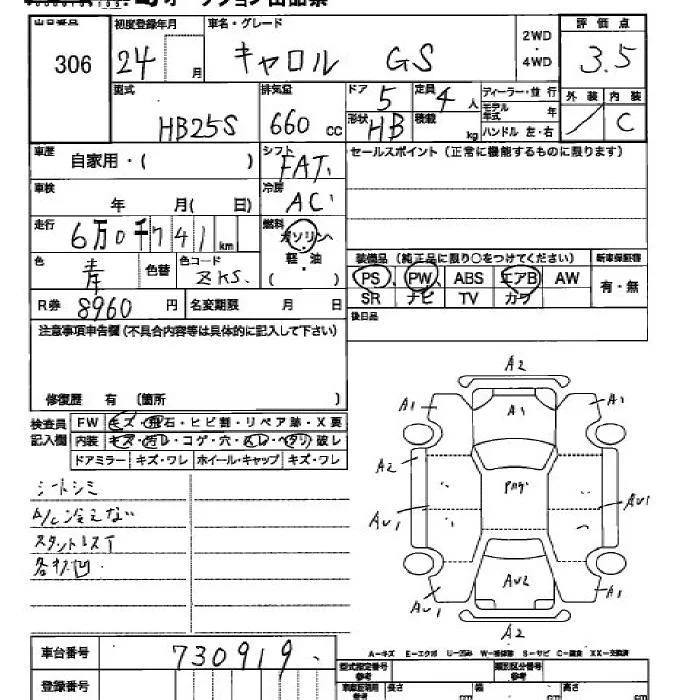 306
初度登録年月
24 月
車名・グレード
キャロル GS
2WD
・
4WD
評価点
3.5
外装 内装
C
型式
HB25S
排気量
660 cc
ドア 5
定員 4 人
形状 HB
積載 kg
ディーラー・並行
モデル年式 年
ハンドル 左・右
車歴
自家用・( )
シフト
FAT
冷房
AC
車検
年 月( 日)
走行
6万0千741 km
燃料
ガソリン
・
軽・油
( )
色
青
色替
色コード
ZKS.
R券
8960 円
名変期限 月 日
セールスポイント(正常に機能するものに限ります)
装備品(純正品に限り○をつけてください)
PS PW ABS エアB AW
SR ナビ TV カワ
新車保証書
有・無
後日品
注意事項申告欄(不具合内容等は具体的に記入して下さい)
修復歴 有 〔箇所 〕
検査員
記入欄
FW キズ・飛石・ヒビ割・リペア跡・X要
内装 キズ・汚レ・コゲ・穴・スレ・ヘタリ・破レ
ドアミラー キズ・ワレ ホイール・キャップ キズ・ワレ
シートシミ
A/C冷えない
A2
A1 A1 A1
A2
AU1 AU1
AU2
AU1 A1
A2
車台番号
730919
登録番号
A-キズ E-エクボ U-凹み W-補修跡 S-サビ C-腐食 XX-交換済
型式指定番号
類別区分番号
長さ cm
幅 cm
高さ cm